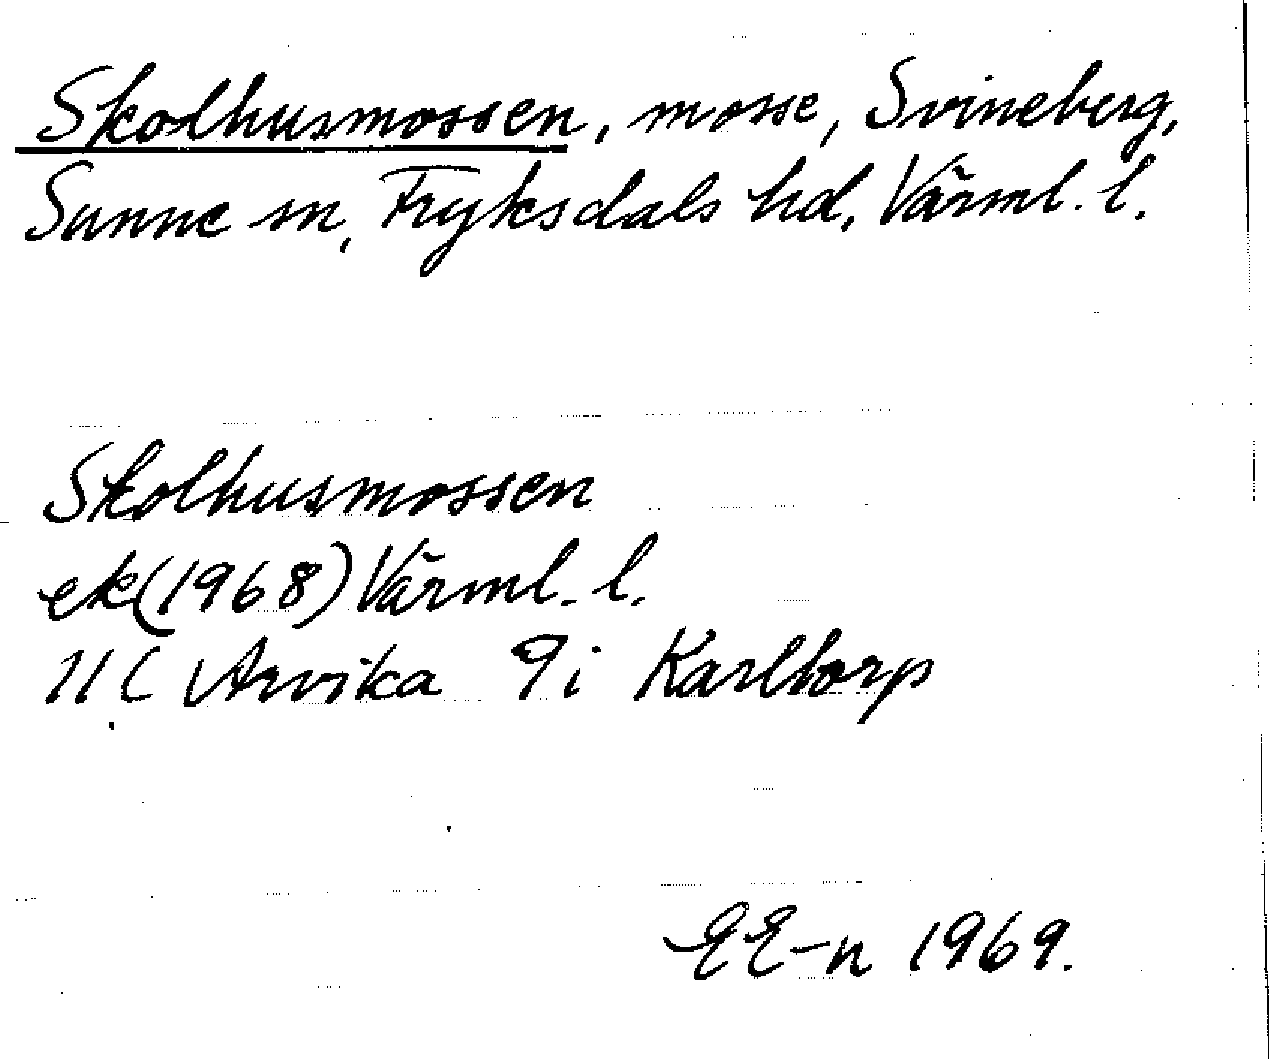 Skolhusmossen, mosse, Svineberg,
Sunne sn, Fryksdals hd, Värml. l.
Skolhusmossen
ek (1968) Värml. l.
11C Arvika 9i Karltorp
EE-n 1969.